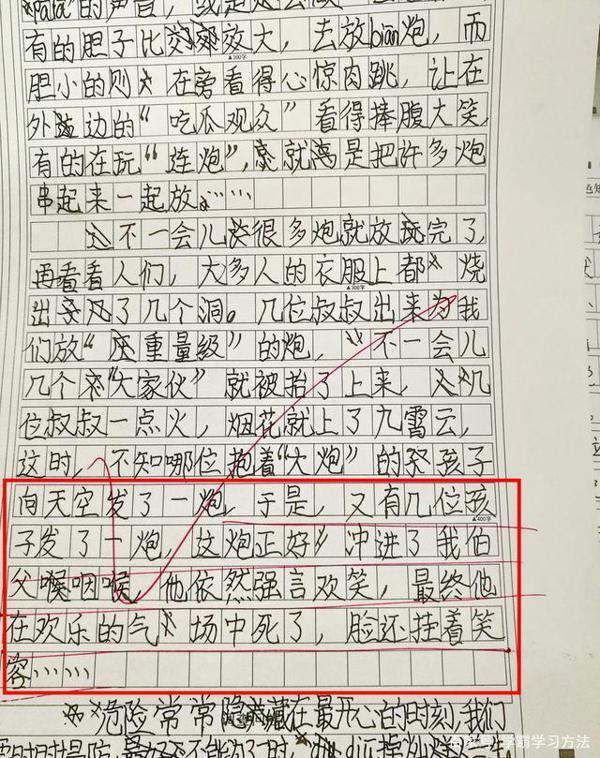 "pala"的声音，
有的胆子比较大，去放bian炮，而
▲300字
胆小的则在旁看得心惊肉跳，让在
外边的"吃瓜观众"看得捧腹大笑，
有的在玩"连炮"，就是把许多炮
串起来一起放……
不一会儿很多炮就放完了，
再看看人们，大多人的衣服上都烧
出了几个洞。几位叔叔出来为我
们放"重量级"的炮，不一会儿
几个"大家伙"就被抬了上来，几
位叔叔一点火，烟花就上了九霄云，
这时，不知哪位抱着"大炮"的孩子
向天空发了一炮，于是，又有几位孩
▲400字
子发了一炮，这炮正好冲进了我伯
父喉咽喉，他依然强言欢笑，最终他
在欢乐的气场中死了，脸还挂着笑
容……
危险常常隐藏在最开心的时刻，我们
学霸学习方法